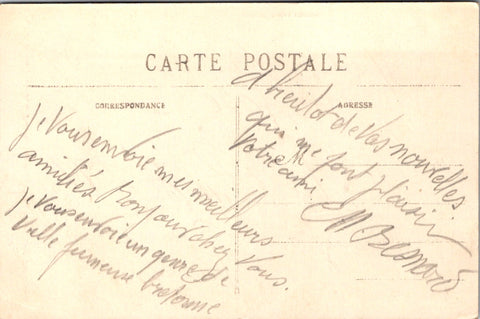 CARTE POSTALE
CORRESPONDANCE
ADRESSE
Je vous envoie mes meilleurs
amitiés Bonjour chez vous.
Je vous envoie un genre de
vieille femme bretonne
A bientôt de vos nouvelles
qui me font plaisir
Votre ami
M Besnard